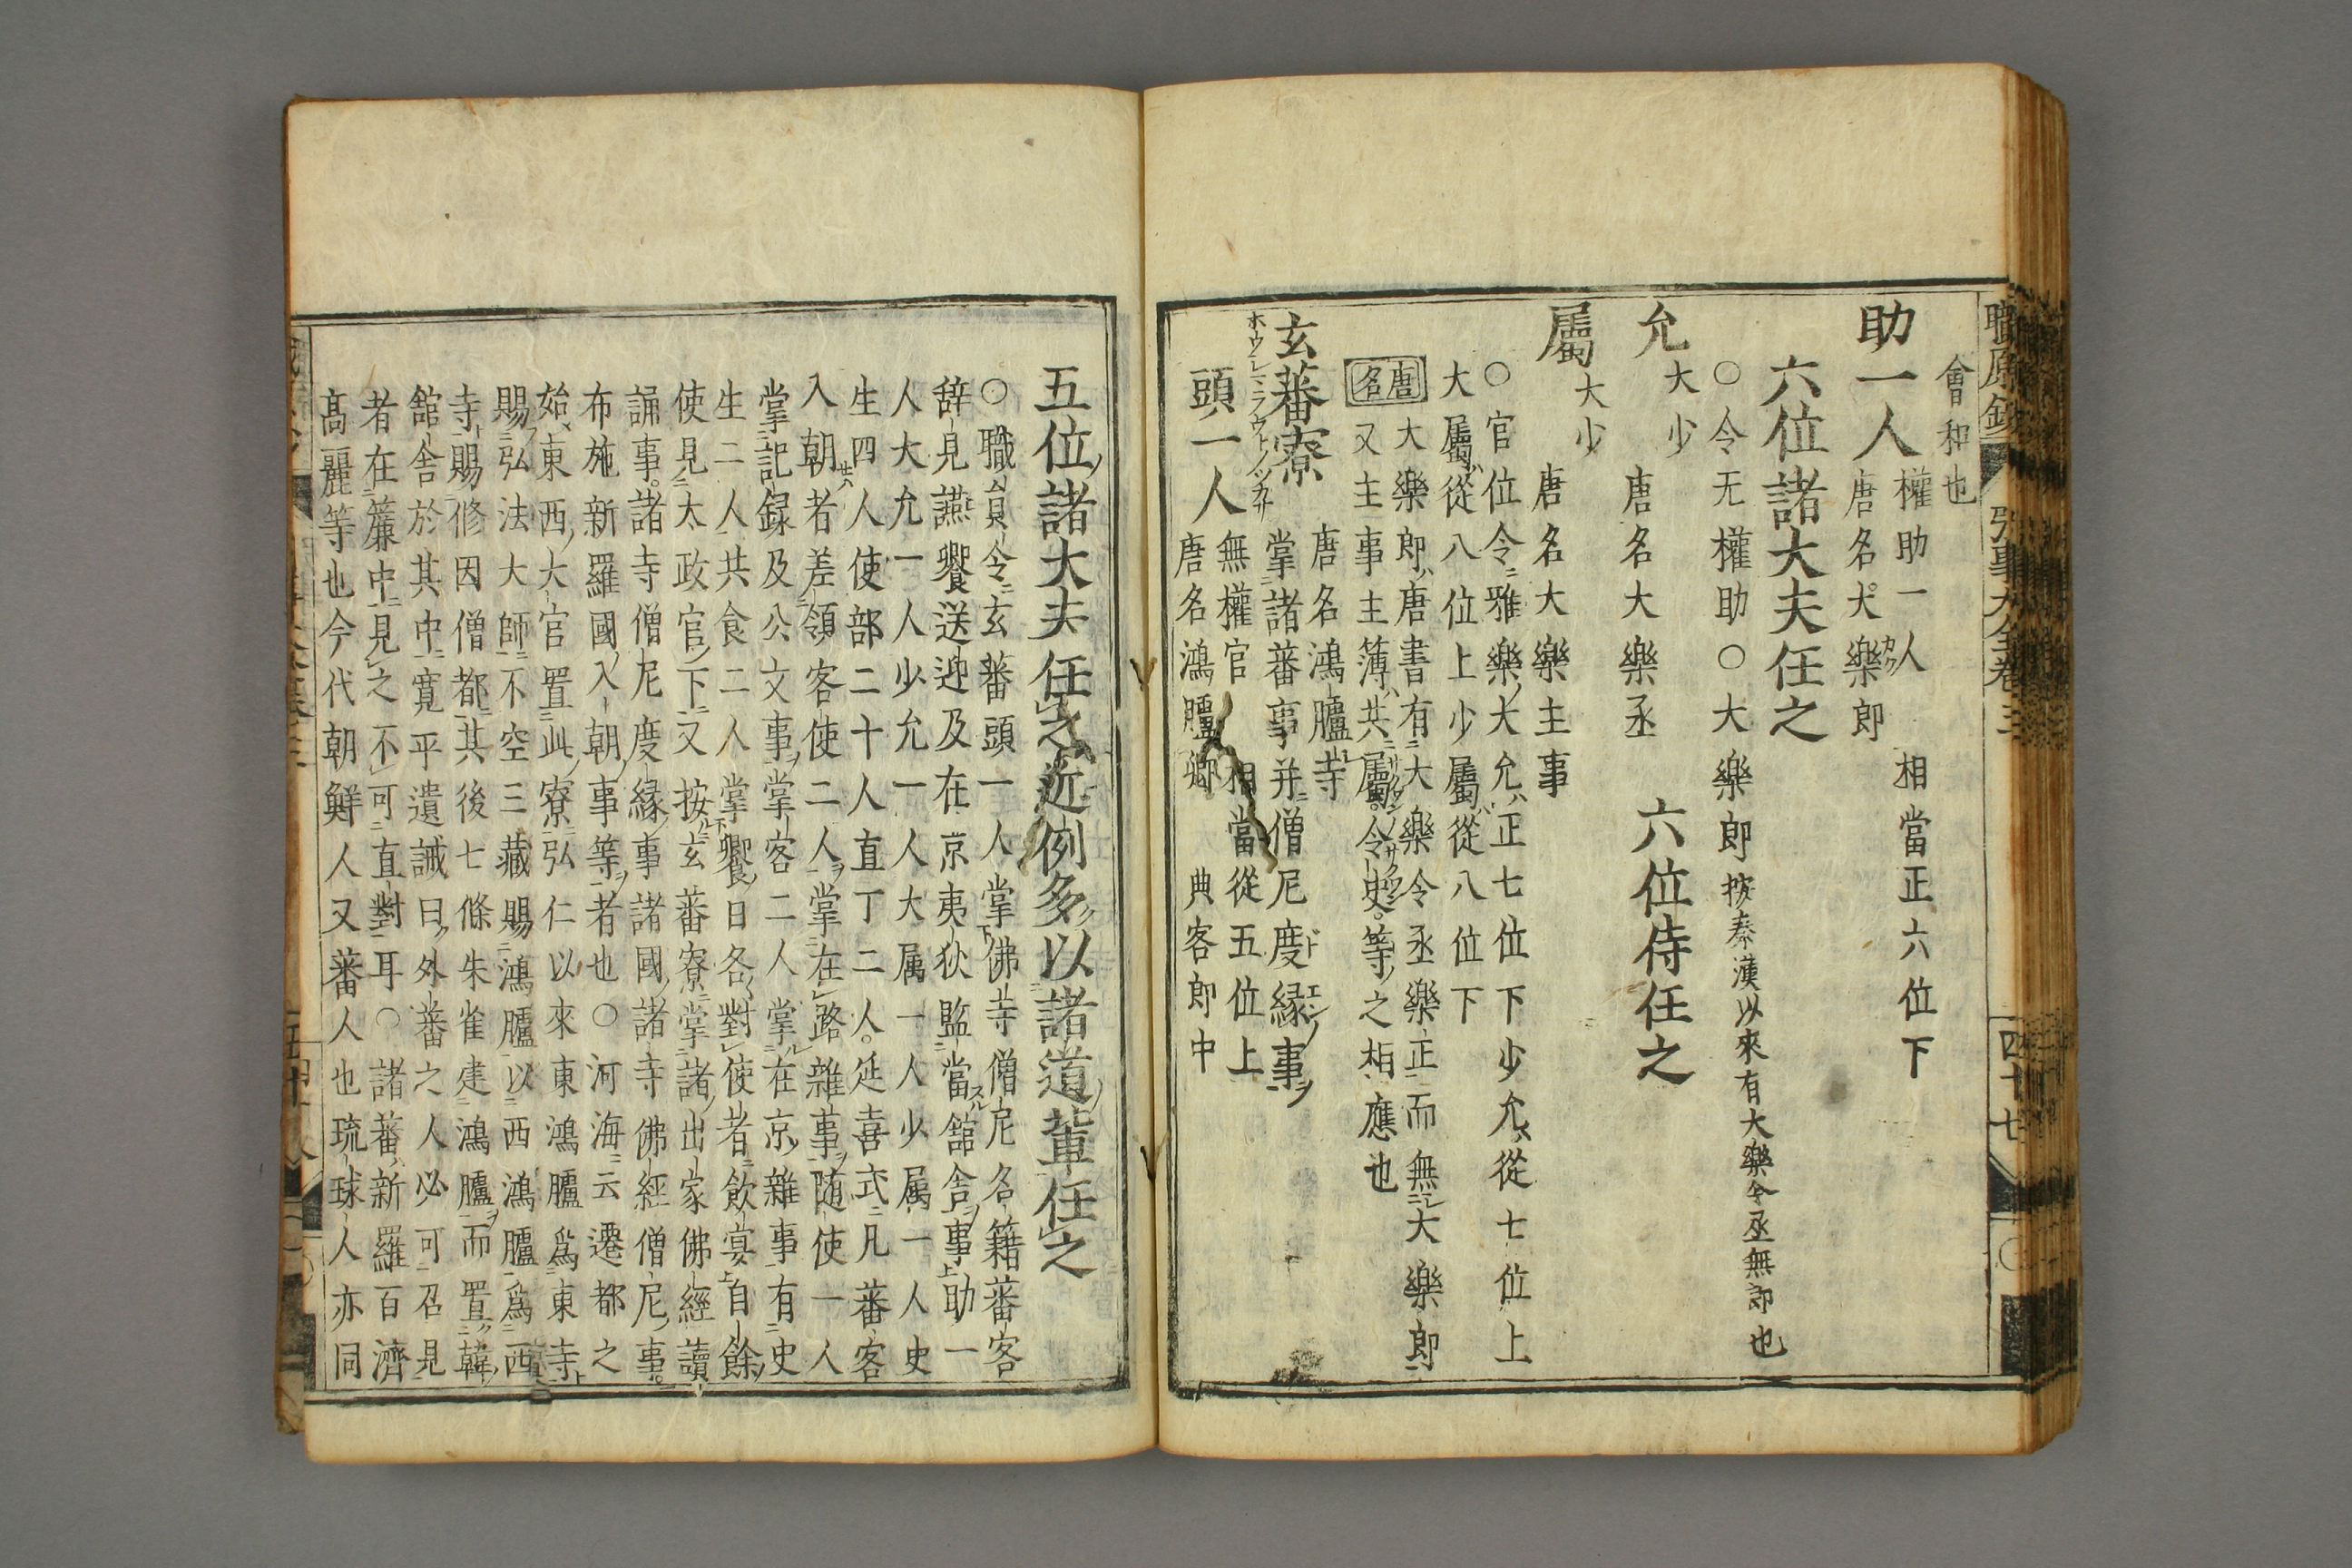 職原鈔
引事大全卷三
四十七
會和也
助一人
權助一人 相當正六位下
唐名大樂郎
六位諸大夫任之
○令无權助○大樂郎按秦漢以來有大樂令丞無郎也
允
大少
唐名大樂丞 六位侍任之
屬
大少
唐名大樂主事
○官位令雅樂大允正七位下少允從七位上
大屬從八位上少屬從八位下
唐名
大樂郎唐書有大樂令丞樂正而無大樂郎
又主事主薄共屬令史等之相應也
玄蕃寮
唐名鴻臚寺
掌諸蕃事并僧尼度緣事
頭一人
無權官 相當從五位上
唐名鴻臚卿 典客郎中
五位諸大夫任之近例多以諸道輩任之
○職員令玄蕃頭一人掌佛寺僧尼名籍蕃客
辞見讌饗送迎及在京夷狄監當舘舎事助一
人大允一人少允一人大属一人少属一人史
生四人使部二十人直丁二人延喜式凡蕃客
入朝者差領客使二人掌在路雜事随使一人
掌記録及公文事掌客二人掌在京雜事有史
生二人共食二人掌饗日各對使者飲宴自餘
使見太政官下又按玄蕃寮掌諸出家佛經讀
誦事諸寺僧尼度緣事諸國諸寺佛經僧尼事
布施新羅國入朝事等者也○河海云遷都之
始東西大官置此寮弘仁以來東鴻臚爲東寺
賜弘法大師不空三藏賜鴻臚以西鴻臚爲西
寺賜修因僧都其後七條朱雀建鴻臚而置韓
舘舎於其中寛平遺誡曰外蕃之人必可召見
者在簾中見之不可直對耳○諸蕃新羅百濟
髙麗等也今代朝鮮人又蕃人也琉球人亦同